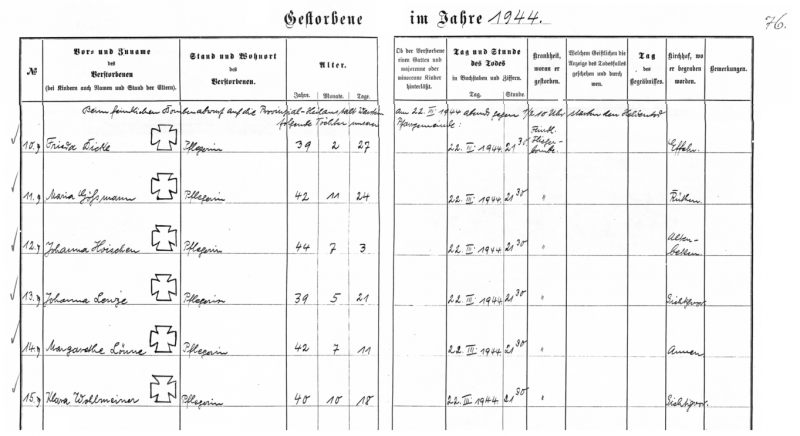 Gestorbene im Jahre 1944.
76.
№
Vor- und Zuname
des
Verstorbenen
(bei Kindern auch Namen und Stand der Eltern).
Stand und Wohnort
des
Verstorbenen.
Alter.
Jahre. Monate. Tage.
Ob der Verstorbene
einen Gatten und
majorenne oder
minorenne Kinder
hinterläßt.
Tag und Stunde
des Todes
in Buchstaben und Ziffern.
Tag. Stunde.
Krankheit,
woran er
gestorben.
Welchem Geistlichen die
Anzeige des Todesfalles
geschehen und durch
wen.
Tag
des
Begräbnisses.
Kirchhof, wo
er begraben
worden.
Bemerkungen.
Beim feindlichen Bombenabwurf auf die Provinzial-Heilanstalt am 22. III. 1944 abends gegen 1/2 10 Uhr starben den Heldentod
folgende Töchter unserer Pfarrgemeinde:
10.) Frieda Dicke Pflegerin 39 2 27 22. III. 1944 21 30
11.) Maria Gößmann Pflegerin 42 11 24 22. III. 1944 21 30 " Rüthen.
12.) Johanna Hoischen Pflegerin 44 7 3 22. III. 1944 21 30 " Alten-
beken.
13.) Johanna Lenze Pflegerin 39 5 21 22. III. 1944 21 30 " Sichtigvor.
14.) Margarethe Lönne Pflegerin 42 7 11 22. III. 1944 21 30 "
15.) Klara Wollmeiner Pflegerin 40 10 18 22. III. 1944 21 30 " Sichtigvor.